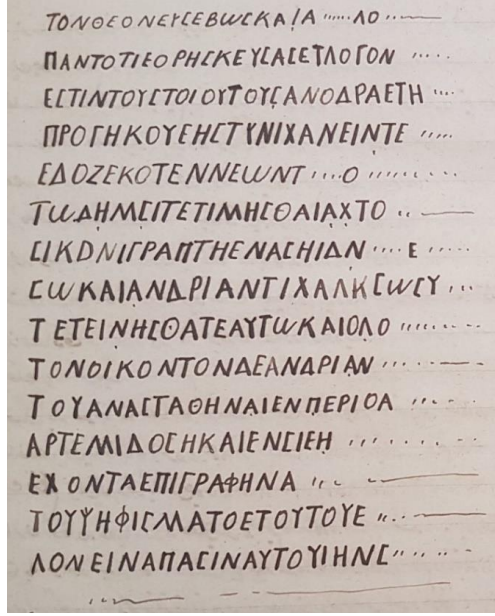 ΤΟΝΘΕΟΝΕΥϹΕΒΩϹΚΑΙΑ ..... ΛΟ .....
ΠΑΝΤΟΤΙΕΟΡΗϹΚΕΥϹΑϹΕΤΛΟΓΟΝ .....
ΕϹΤΙΝΤΟΥϹΤΟΙΟΥΤΟΥϹΑΝΟΔΡΑΕΤΗ ....
ΠΡΟΓΗΚΟΥΕΗϹΤΥΝΙΧΑΝΕΙΝΤΕ .....
ΕΔΟΖΕΚΟΤΕΝΝΕΩΝΤ ....Ο ........
ΤΩΔΗΜϹΙΤΕΤΙΜΗϹΘΑΙΑΧΤΟ ..
ϹΙΚΟΝΙΓΡΑΠΤΗΕΝΑϹΗΙΔΝ .... Ε .....
ϹΩΚΑΙΑΝΔΡΙΑΝΤΙΧΑΛΚϹΩϹΥ ...
ΤΕΤΕΙΝΗϹΘΑΤΕΑΥΤΩΚΑΙΟΛΟ ........
ΤΟΝΟΙΚΟΝΤΟΝΔΕΑΝΔΡΙΑΝ .....
ΤΟΥΑΝΑϹΤΑΘΗΝΑΙΕΝΠΕΡΙΟΑ .....
ΑΡΤΕΜΙΔΟϹΗΚΑΙΕΝϹΙΕΗ ........
ΕΧΟΝΤΑΕΠΙΓΡΑΦΗΝΑ ...
ΤΟΥΨΗΦΙϹΜΑΤΟΕΤΟΥΤΟΥΕ ...
ΛΟΝΕΙΝΑΠΑϹΙΝΑΥΤΟΥΙΗΝϹ ......